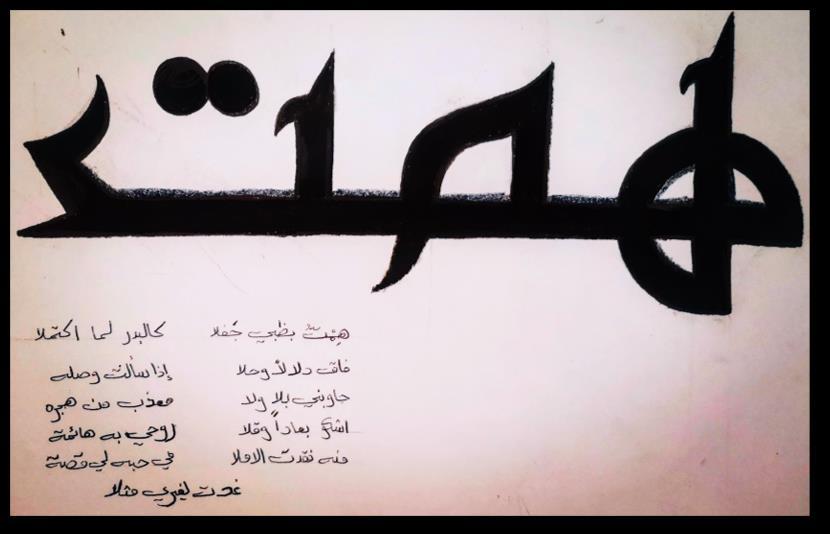 همت
هِمْتُ بظبي جَفلا كالبدر لما اكتملا
فاق دلالاً وحلا إذا سألت وصله
جاوبني بلا ولا معذب من هجره
اشكو بعاداً وقلا روحي به هائمة
منه فقدت الاملا في حبه لي قصة
غدت لغيري مثلا